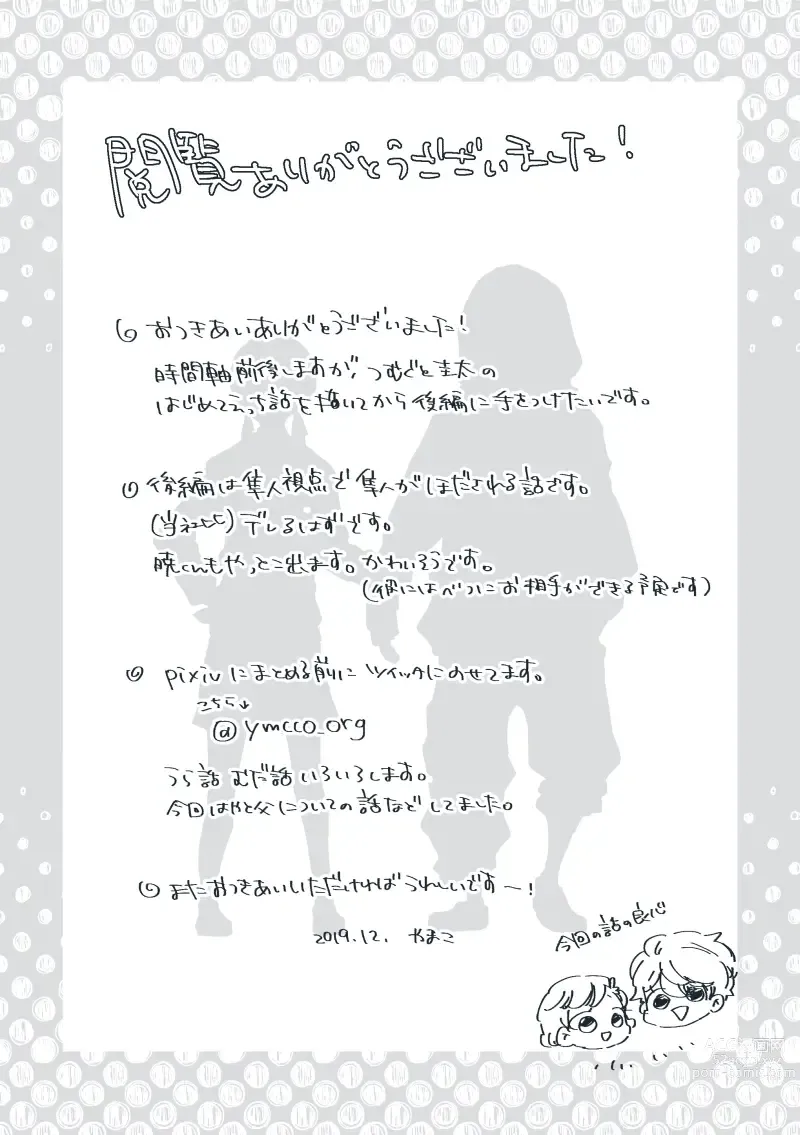 閲覧ありがとうございました！
おつきあいありがとうございました！
時間軸前後しますが、つむぐと圭太の
はじめてえっち話を描いてから後編に手をつけたいです。
後編は隼人視点で隼人がほだされる話です。
(当社比)デレるはずです。
暁くんもやっとこ出ます。かわいそうです。
(彼にはべつにお相手ができる予定です)
pixivにまとめる前にツイッタにのせてます。
こちら↓
@ymcco_org
うら話むだ話いろいろします。
今回はやと父についての話などしてました。
またおつきあいいただければうれしいですー！
2019.12. やまこ
今回の話の良心